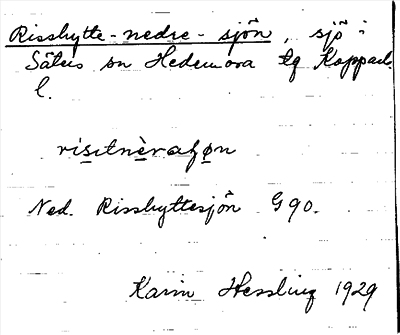 Risshytte-nedre-sjön, sjö i
Säters sn Hedemora tg Kopparb.
l.
risıtnèraføn
Ned. Risshyttesjön G90.
Karin Hessling 1929